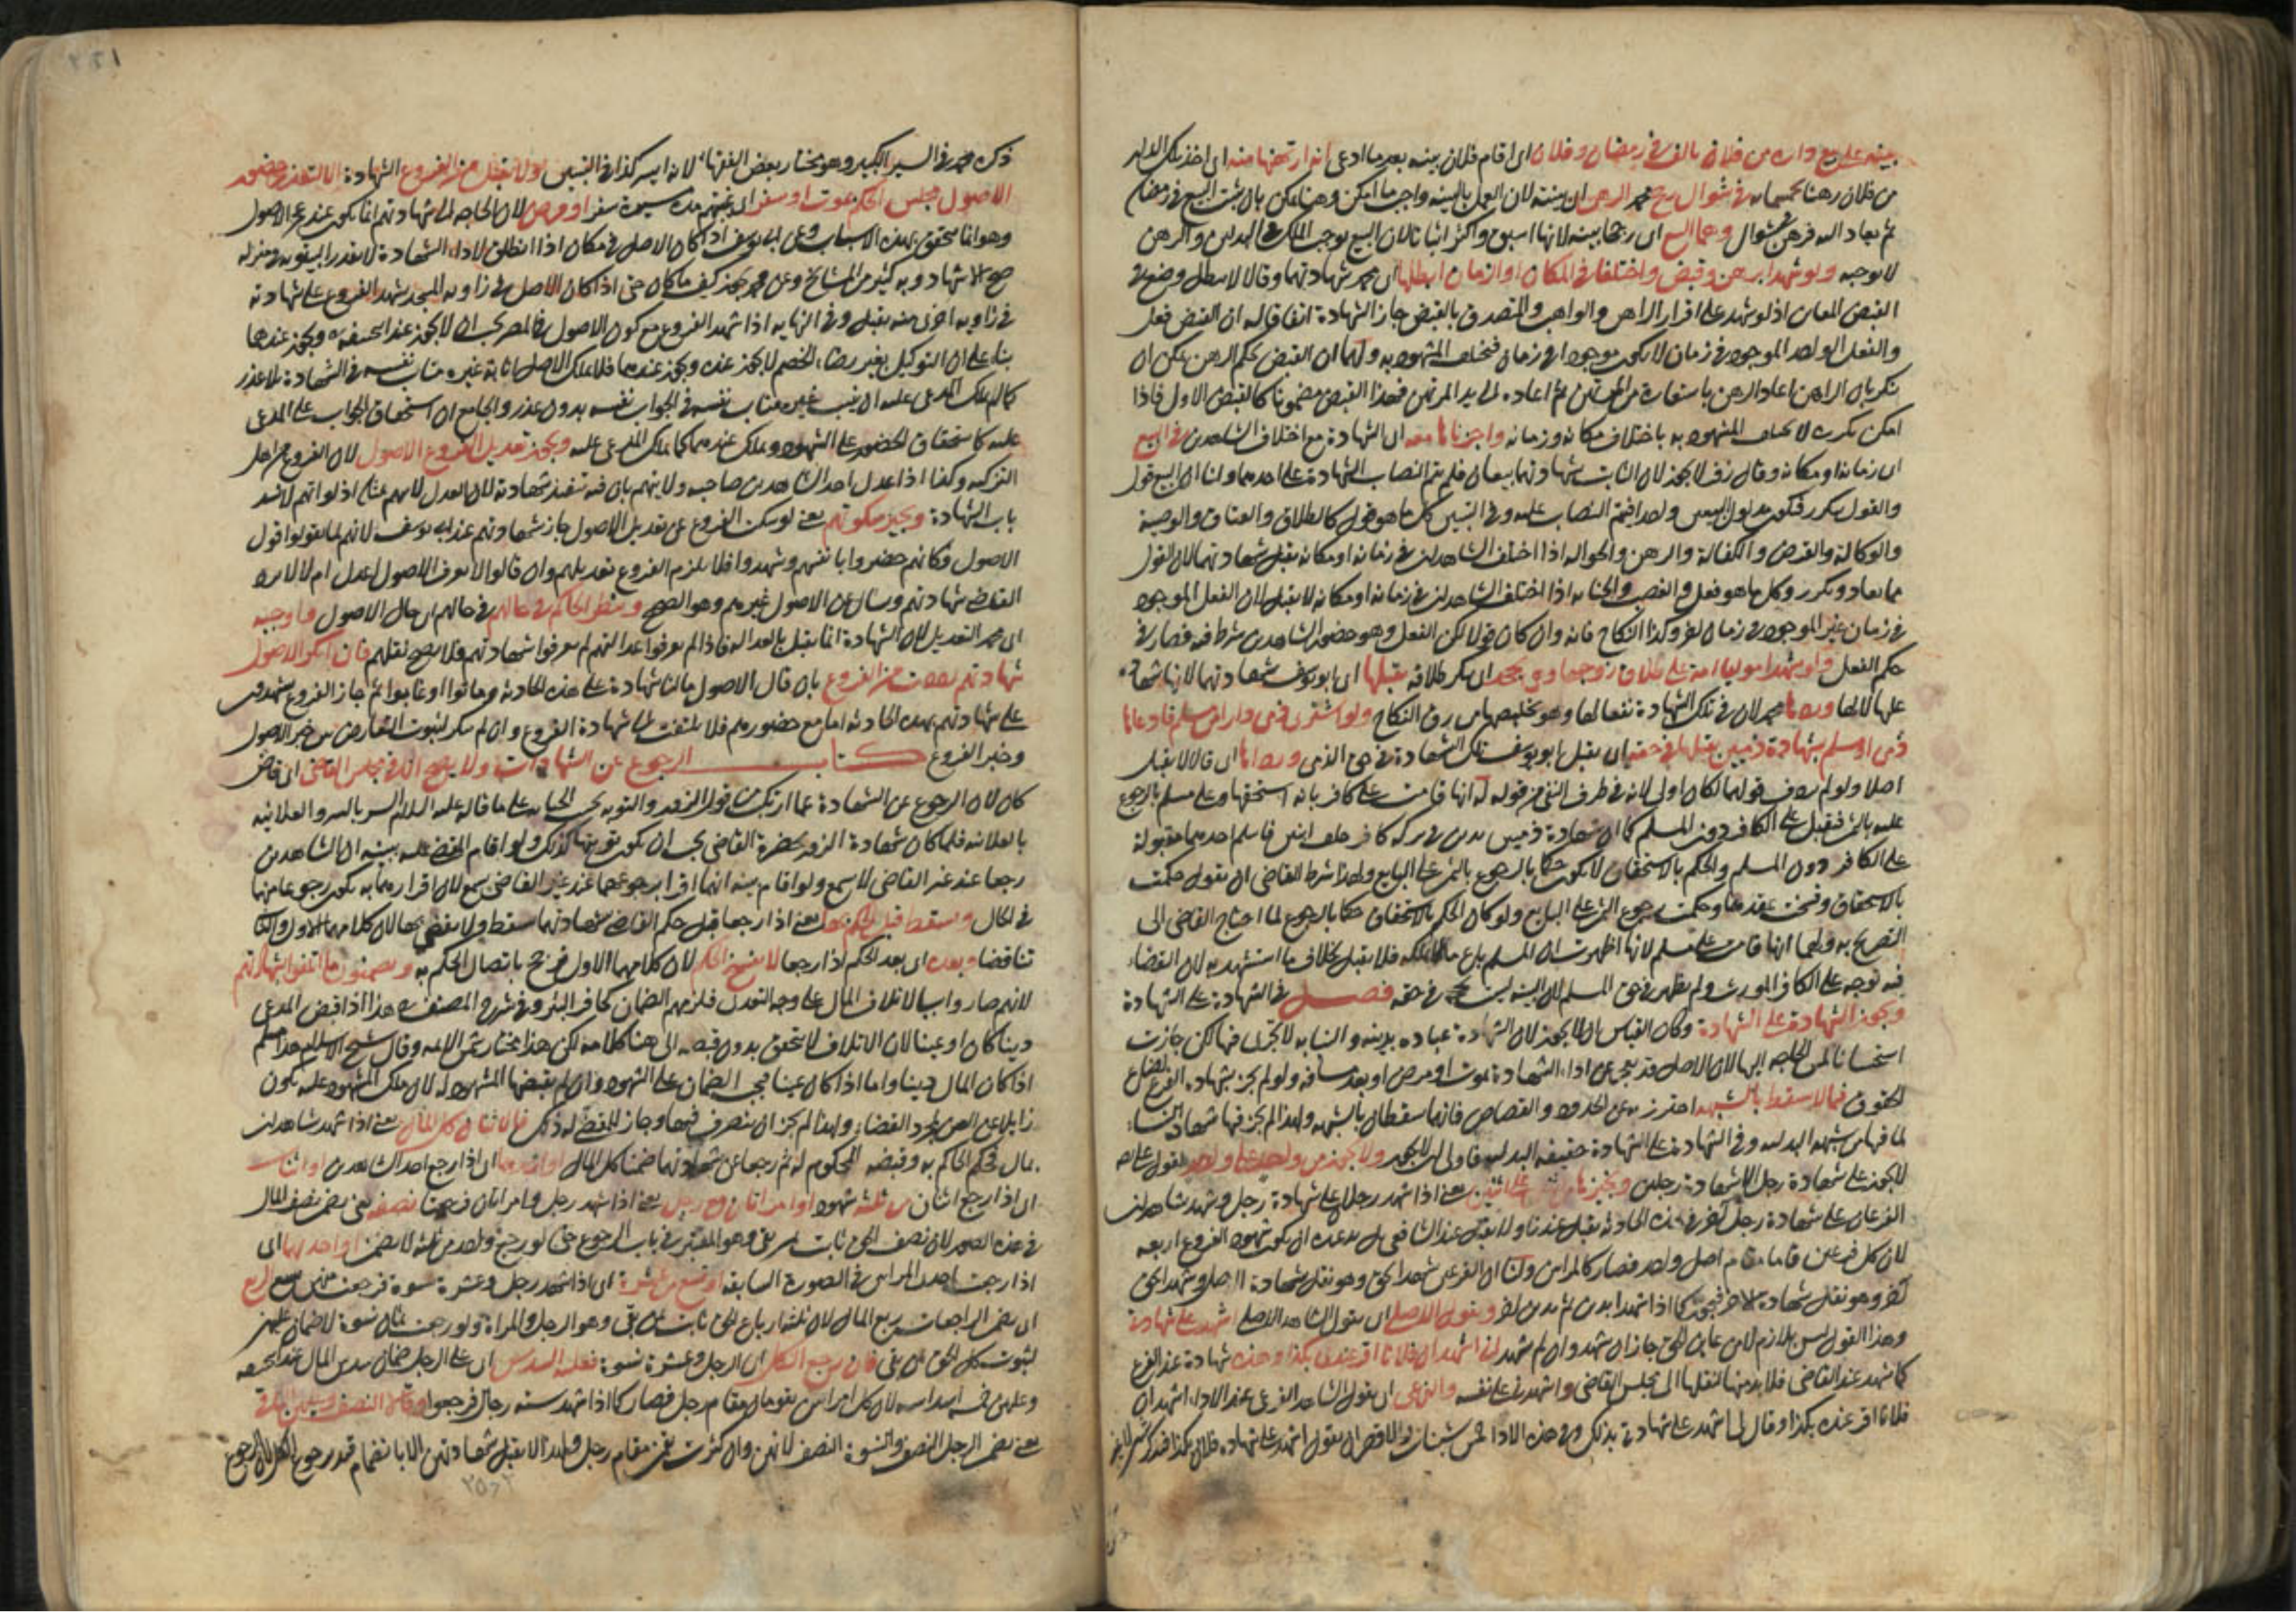 بينة على بيع داره من فلان بالف في رمضان وفلان اى اقام فلان بينه بعد ما ادعى انه ارتهنها منه اى اخذ تلك الدار
من فلان رهنا بخمسمائة في شوال رجح محمد الرهن اى بينته لان العمل بالبينة واجب ما امكن وهنا يمكن بان يثبت البيع في رمضان
ثم يعاد اليه فرهن في شوال وهما البيع اى رجحا بينه لانها اسبق واكثر اثباتا لان البيع يوجب الملك في البدلين والرهن
لا يوجبه ولو شهدا برهن وقبض واختلفا في المكان او الزمان ابطلها اى محمد شهادتهما وقالا لا تبطل وضع في
القبض المعاين اذ لو شهد على اقرار الراهن والواهب والمتصدق بالقبض جاز الشهادة اتفاقا له ان القبض فعل
والفعل الواحد الموجود في زمان لا يكون موجودا في زمان فيختلف المشهود به ولهما ان القبض بحكم الرهن يمكن ان
يتكرر بان الراهن اعاد الرهن باستعارة من المرتهن ثم اعاده الى يد المرتهن فهذا القبض مضمونا كالقبض الاول فاذا
امكن تكرره لا يختلف المشهود به باختلاف مكانه وزمانه واجزناها معه اى الشهادة مع اختلاف الشاهدين في البيع
اى زمانه او مكانه وقال زفر لا يجوز لان الثابت بشهادتهما بيعان فلم يتم النصاب الشهادة على احدهما ولنا ان البيع قول
والقول يتكرر فيكون مدلول البيعين واحدا فيتم النصاب عليه وفي التبيين كل ما هو قول كالطلاق والعتاق والوصية
والوكالة والقرض والكفالة والرهن والحوالة اذا اختلف الشاهدان في زمانه او مكانه يقبل شهادتهما لان القول
مما يعاد ويكرر وكل ما هو فعل والغصب والجنايه اذا اختلف الشاهدان في زمانه او مكانه لا يقبل لان الفعل الموجود
في زمان غير الموجود في زمان اخر وكذا النكاح فانه وان كان قولا لكن الفعل وهو حضور الشاهدين شرط فيه فصار في
حكم الفعل ولو شهدا مولیا امة على طلاق زوجها وهي تجحد اى تنكر طلاقه يقبلها اى ابو يوسف شهادتهما لانها شهادة
عليها لا لها وردها محمد لان في تلك الشهادة نفعا لها وهو تخليصها من رق النكاح ولو اشترى ذمى دارا من مسلم فادعاها
ذمى او مسلم بشهادة ذميين يقبلها في حقه اى يقبل ابو يوسف تلك الشهادة في حق الذمى وردها اى قالا لا يقبل
اصلا ولو لم يردف قولهما لكان اولى لانه في طرف النفى من قوله له انها قامت على كافر بانه استحقها وعلى مسلم بالرجوع
عليه بالثمن فيقبل على الكافر دون المسلم كما ان شهادة ذميين بدين في تركه كافر خلف ابنين فاسلم احدهما مقبولة
على الكافر دون المسلم والحكم بالاستحقاق لا يكون حكما بالرجوع بالثمن على البايع ولهذا شرط القاضى ان يقول حكمت
بالاستحقاق وفسخت عقدهما وحكمت برجوع الثمن على البايع ولو كان الحكم بالاستحقاق حكما بالرجوع لما احتاج القاضى الى
التصريح به ولهما انها قامت على مسلم لانها اظهرت ان المسلم باع ما لا يملكه فلا يقبل بخلاف ما استشهد به لان القضاء
فيه توجه على الكافر المورث ولم يظهر في حق المسلم لان البينه ليست بحجة في حقه فصل في الشهادة على الشهادة
ويجوز الشهادة على الشهادة وكان القياس ان لا يجوز لان الشهادة عباده بدنيه والنيابه لا تجزى فيها لكن جازت
استحسانا لمس الحاجه اليها لان الاصل قد يعجز عن اداء الشهادة لموت او مرض او بعد مسافه ولو لم يجز بشهادة الفرع لضاع
الحقوق فيما لا يسقط بالشبهه احترز به عن الحدود والقصاص فانهما يسقطان بالشبهه ولهذا لم يجز فيها شهادة النساء
لما فيها من شبهه البدليه وفي الشهادة على الشهادة حقيقه البدليه فاولى ان لا يجوز ولا يجوز من واحد على واحد لقول على رضه
لا يجوز على شهادة رجل الا شهادة رجلين ويجيزها من اثنين على اثنين يعنى اذا شهد رجلان على شهادة رجل وشهد شاهدان
الفرعان على شهادة رجل اخر في هذه الحادثه يقبل عندنا ولا يقبل عند الشافعى بل لا بد عنده ان يكون شهود الفروع اربعه
لان كل فرعين قاما مقام اصل واحد فصار كالمراتين ولنا ان الفرعين شهدا بحق وهو نقل شهادة الاصل وشهدا بحق
آخر وهو نقل شهادة الاخر فيجوز كما اذا شهدا بدين ثم بدين اخر ويقول الاصلى اى يقول الشاهد الاصلى اشهد على شهادتى
وهذا القول ليس بلازم لان من عاين الحق جاز ان يشهد وان لم يشهد انى اشهد ان فلانا اقر عندى بكذا وهذه شهادة عند الفرع
كما شهد عند القاضى فلا بد منها لنقلها الى مجلس القاضى واشهدنى على نفسه والفرعى اى يقول الشاهد الفرعى عند الاداء اشهد ان
فلانا اقر عنده بكذا وقال لى اشهد على شهادتى بذلك وفي هذه الادا خمس شينات والاقصر ان يقول اشهد على شهادة فلان بكذا
ذكره محمد في السير الكبير وهو مختار بعض الفقهاء لانه ايسر كذا في التبيين ولا يقبل من الفروع الشهادة الا بتعذر حضور
الاصول مجلس الحكم بموت او سفر اى غيبتهم مده مسيرة سفر او مرض لان الحاجه الى شهادتهم انما يكون عند عجز الاصول
وهو انما يتحقق بهذه الاسباب وعن ابى يوسف اذا كان الاصل في مكان اذا انطلق لاداء الشهادة لا يقدر البيتوته في منزله
صح الاشهاد وبه كثير من المشايخ وعن محمد يجوز كيف ما كان حتى اذا كان الاصل في زاويه المسجد شهد الفروع على شهادته
في زاويه اخرى منه يقبل وفي النهايه اذا شهد الفروع مع كون الاصول في المصر يجب ان لا يجوز عند ابى حنيفه ويجوز عندهما
بناء على ان التوكيل بغير رضاء الخصم لا يجوز عنده ويجوز عندهما فلا يملك الاصل انابة غيره مناب نفسه في الشهادة بلا عذر
كما لم يملك المدعى عليه ان ينيب غيره مناب نفسه في الجواب نفسه بدون عذر والجامع ان استحقاق الجواب على المدعى
عليه كاستحقاق الحضور على الشهود ويملك عندهما كما يملك المدعى عليه ويجوز تعديل الفروع الاصول لان الفروع من اهل
التزكيه وكذا اذا عدل احد الشاهدين صاحبه ولا يتهم بان فيه تنفيذ شهادته لان العدل لا يتهم بمثله اذ لو اتهم لانسد
باب الشهادة ويجيز سكوتهم يعنى لو سكت الفروع عن تعديل الاصول جاز شهادتهم عند ابى يوسف لانهم لما نقلوا قول
الاصول فكانهم حضروا بانفسهم وشهدوا فلا يلزم الفروع تعديلهم وان قالوا لا نعرف الاصول اعدل ام لا لا يرد
القاضى شهادتهم ويسال عن الاصول غيرهم وهو الصحيح وينظر الحاكم في حالهم في حالهم اى حال الاصول واوجبه
اى محمد التعديل لان الشهادة انما يقبل بالعداله فاذا لم يعرفوا عدالتهم لم يعرفوا شهادتهم فلا يصح نقلهم فان انكر الاصول
شهادتهم ردت من الفروع بان قال الاصول مالنا شهادة على هذه الحادثه وماتوا او غابوا ثم جاز الفروع يشهدون
على شهادتهم بهذه الحادثه اما مع حضورهم فلا يلتفت الى شهادة الفروع وان لم ينكر لثبوت التعارض بين خبر الاصول
وخبر الفروع كتاب الرجوع عن الشهادات ولا يصح الا في مجلس القاضى اى قاض
كان لان الرجوع عن الشهادة عما ارتكب من قول الزور والتوبه بحسب الجنايه على ما قاله عليه السلام السر بالسر والعلانيه
بالعلانيه فلما كان شهادة الزور بحضرة القاضى يجب ان يكون توبتها كذلك ولو اقام المقضى عليه بينه ان الشاهدين
رجعا عند غير القاضى لا يسمع ولو اقام بينه انهما اقرا برجوعهما عند غير القاضى يسمع لان اقرارهما به يكون رجوعا منهما
في الحال ويسقط قبل الحكم بها يعنى اذا رجعا قبل حكم القاضى شهادتهما سقط ولا يقضى بها لان كلامهما الاول والثانى
تناقضا وبعده اى بعد الحكم اذا رجعا لا يفسخ الحكم لان كلامهما الاول ترجح باتصال الحكم به ويضمنون ما اتلفوا بشهادتهم
لانهم صاروا سببا لاتلاف المال على وجه التعدى فلزمهم الضمان كحافر البئر وفي شرح المصنف هذا اذا قبض المدعى
دينا كان او عينا لان الاتلاف لا يتحقق بدون قبضه الى هنا كلامه لكن هذا مختار شمس الائمه وقال شيخ الاسلام هذا مسلم
اذا كان المال دينا واما اذا كان عينا فيجب الضمان على الشهود وان لم يقبضها المشهود له لان ملك المشهود عليه يكون
زايلا عن العين بمجرد القضاء ولهذا لم يجز ان يتصرف فيها وجاز للمقضى له ذلك فالاثنان كل المال يعنى اذا شهد شاهدان
بمال فحكم الحاكم به وقبضه المحكوم له ثم رجعا عن شهادتهما ضمنا كل المال او احدهما اى اذا رجع احد الشاهدين او اثنان
اى اذا رجع اثنان من ثلثه شهود او امراتان مع رجل يعنى اذا شهد رجل وامراتان فرجعتا نصفه يعنى يضمن نصف المال
في هذه الصور لان نصف الحق ثابت بمن بقى وهو المعتبر في باب الرجوع حتى لو رجع واحد من ثلثه لا يضمن او احديهما اى
اذا رجعت احدى المراتين في الصورة السابقه او تسع من عشرة اى اذا شهد رجل وعشرة نسوة فرجعت منهن تسع الربع
اى يضمن الراجعات ربع المال لان ثلثه ارباع الحق ثابت بمن بقى وهو الرجل والمراة ولو رجعت ثمان نسوة لا ضمان عليهن
لثبوت كل الحق بمن بقى فان رجع الكل اى الرجل وعشرة نسوة فعليه السدس اى على الرجل ضمان سدس المال عند ابى حنيفه
وعليهن خمسه اسداسه لان كل امراتين يقومان مقام رجل فصار كما اذا شهد سته رجال فرجعوا وقالا النصف وعليهن الباقى
يعنى يضمن الرجل النصف والنسوة النصف لانهن وان كثرت يقمن مقام رجل ولهذا لا يقبل شهادتهن الا بانضمام